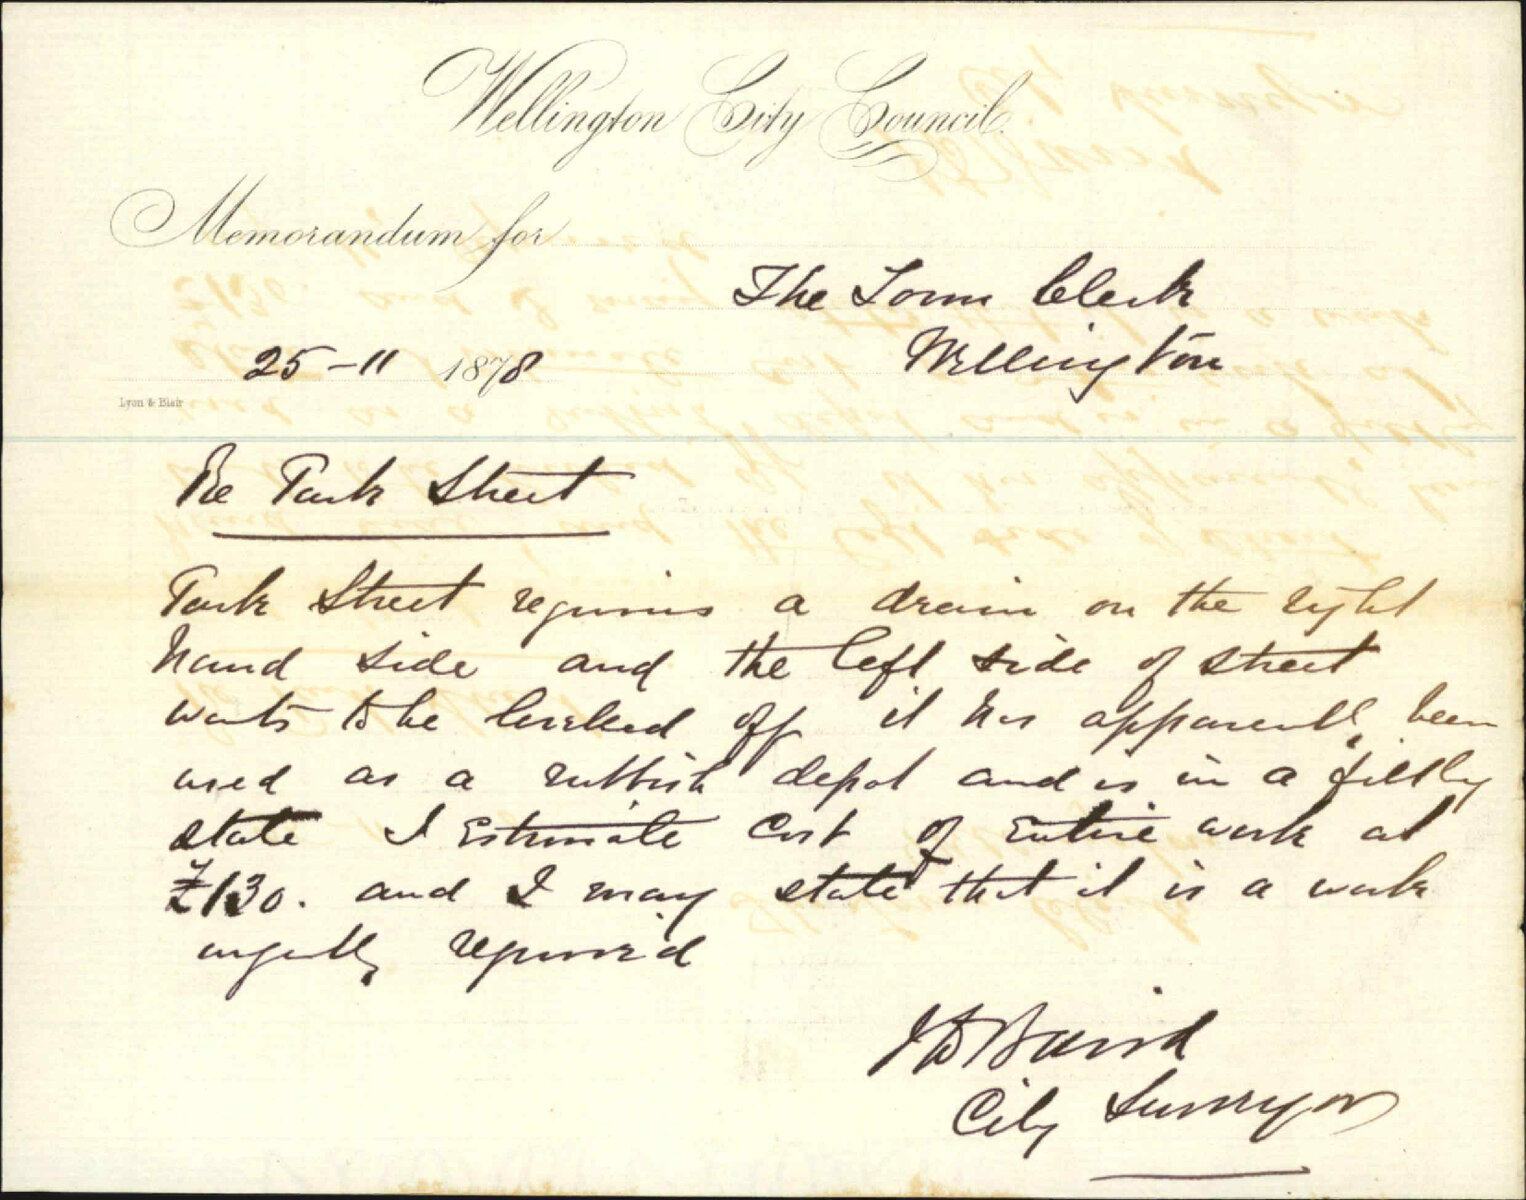 Wellington City Council.
Memorandum for
The Town Clerk
Wellington
25-11 1878
Lyon & Blair
Re Park Street
Park Street requires a drain on the right
hand side and the left side of street
wants to be bricked off it has apparently been
used as a rubbish depot and is in a filthy
state I Estimate Cost of Entire work at
£130. and I may state that it is a work
urgently required
J D Baird
City Surveyor